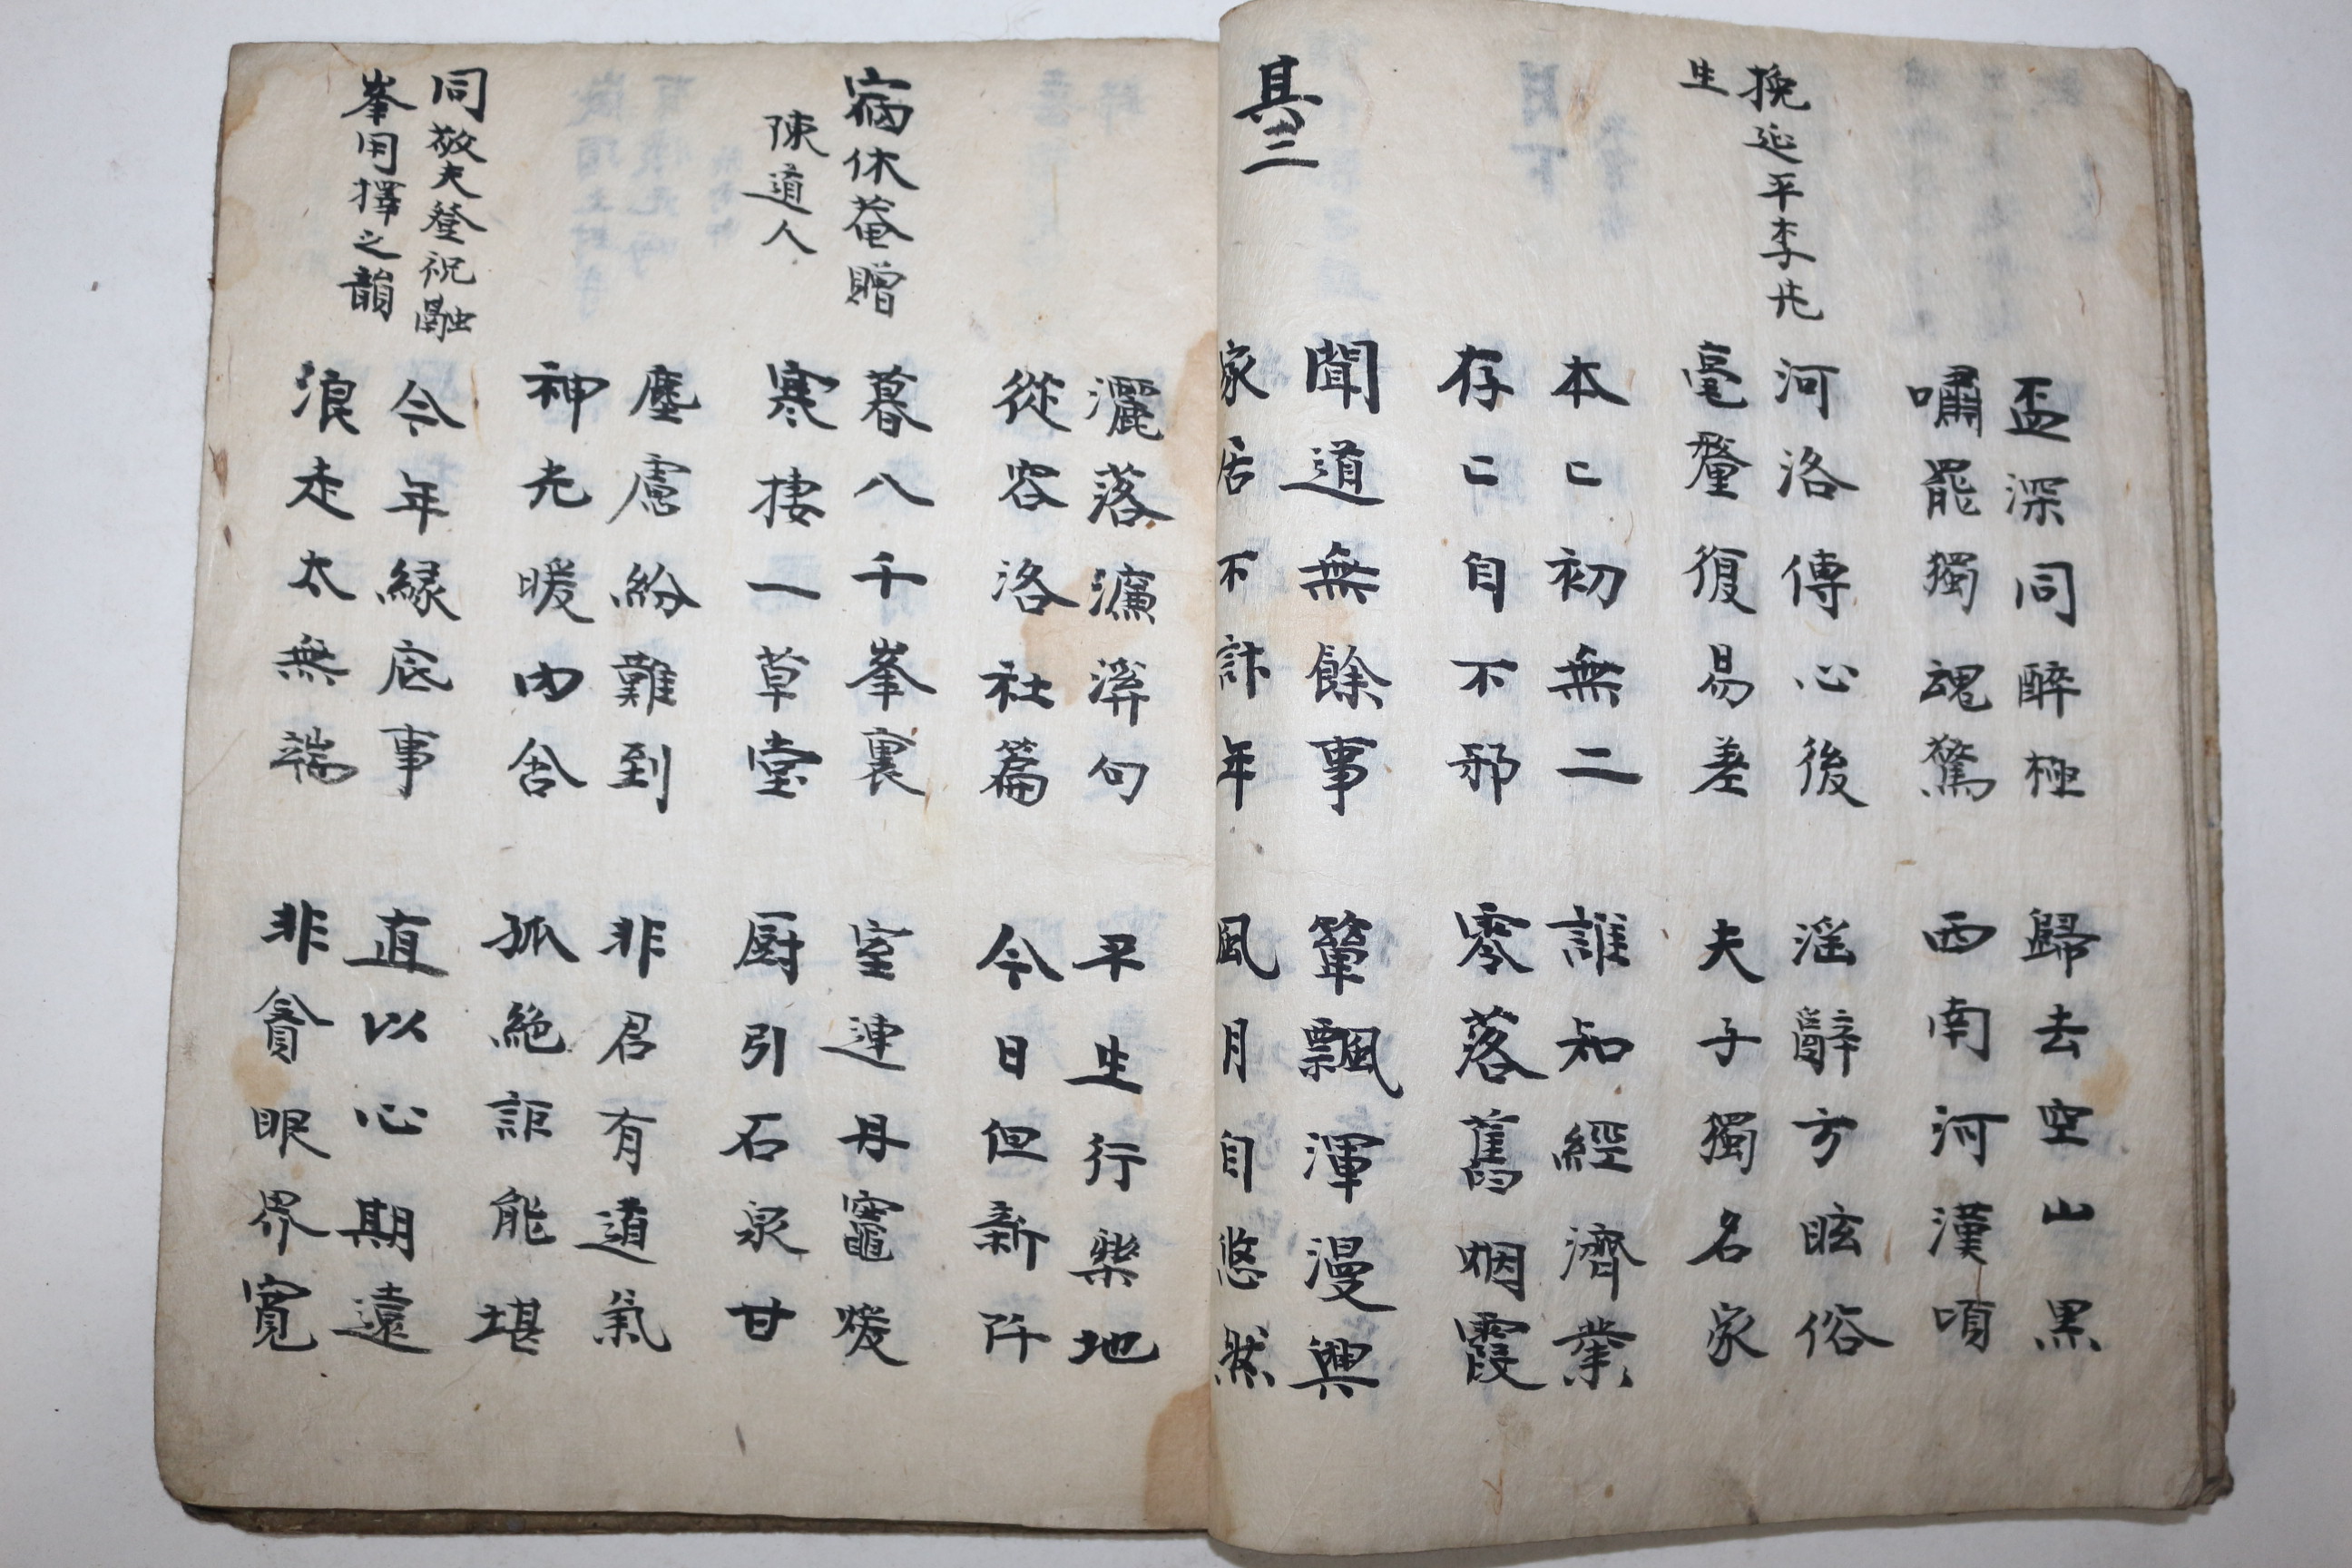 盃深同醉極
嘯罷獨魂驚
歸去空山黑
西南河漢項
挽延平李先
生
河洛傳心後
毫釐復易差
淫辭方眩俗
夫子獨名家
本〻初無二
存〻自不邪
誰知經濟業
零落舊烟霞
其三
聞道無餘事
家居不計年
簞飄渾漫興
風月自悠然
灑落濂溪句
從容洛社篇
平生行樂地
今日但新阡
宿休菴贈
陳道人
暮八千峯裏
寒棲一草堂
室連丹竈暖
厨引石泉甘
塵慮紛難到
神光暖内含
非君有道氣
孤絶詎能堪
同敬夫登祝融
峯用擇之韻
今年緣底事
浪走太無端
直以心期遠
非貪眼界寬